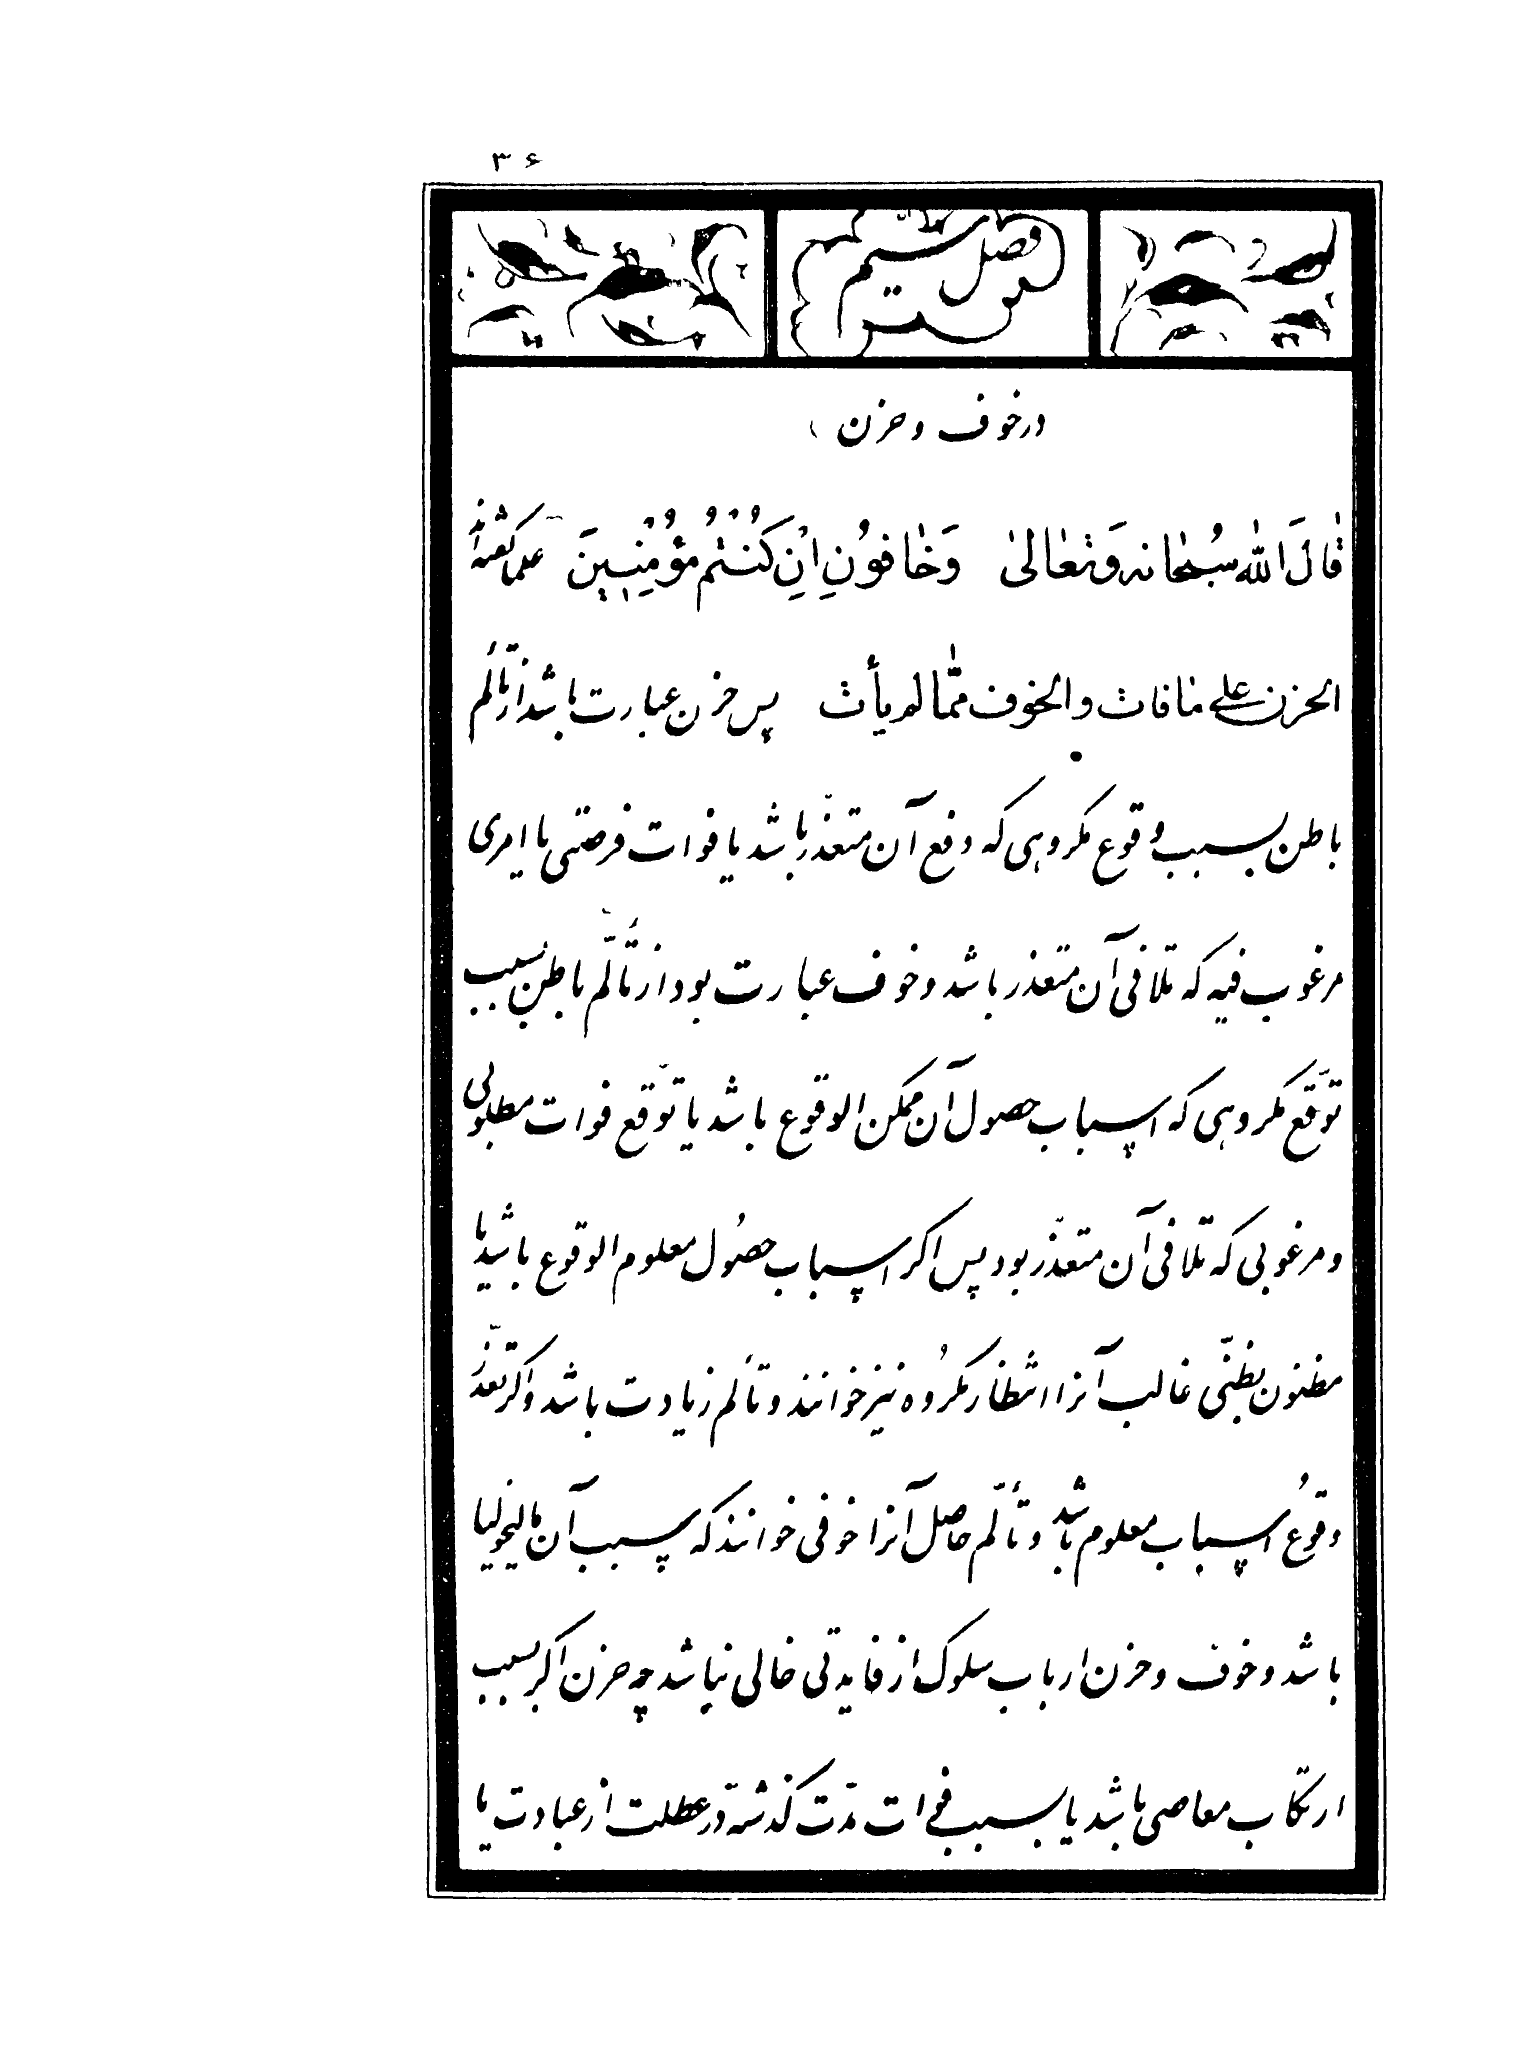 ۳۶
فصل ششم
در خوف و حزن
قَالَ اللهُ سُبْحانه وَتَعالىٰ وَخٰافوُنِ اِنِ كُنْتُمْ مؤُمِنبِينَ علما گفته‌اند
الحزن على مافات والخوف ممّا لم يأت پس حزن عبارت باشد از تألم
باطن بسبب وقوع مکروهی که دفع آن متعذّر باشد یا فوات فرصتی یا امری
مرغوب فیه که تلافی آن متعذر باشد و خوف عبارت بود از تألّم باطن بسبب
توقّع مکروهی که اسباب حصول آن ممکن الوقوع باشد یا توقّع فوات مطلوبی
و مرغوبی که تلافی آن متعذّر بود پس اکر اسباب حصُول معلوم الوقوع باشد یا
مظنون بظنّی غالب آنرا انتظار مکرُوه نیز خوانند و تألم زیادت باشد و اکر تعذّر
وقوُع اسباب معلوم باشد و تألّم حاصل آنرا خوفی خوانند که سبب آن مالیخولیا
باشد و خوف و حزن ارباب سلوک از فایدتی خالی نباشد چه حزن اکر بسبب
ارتکاب معاصی باشد یا بسبب فوات مدّت کذشته در عطلت از عبادت یا